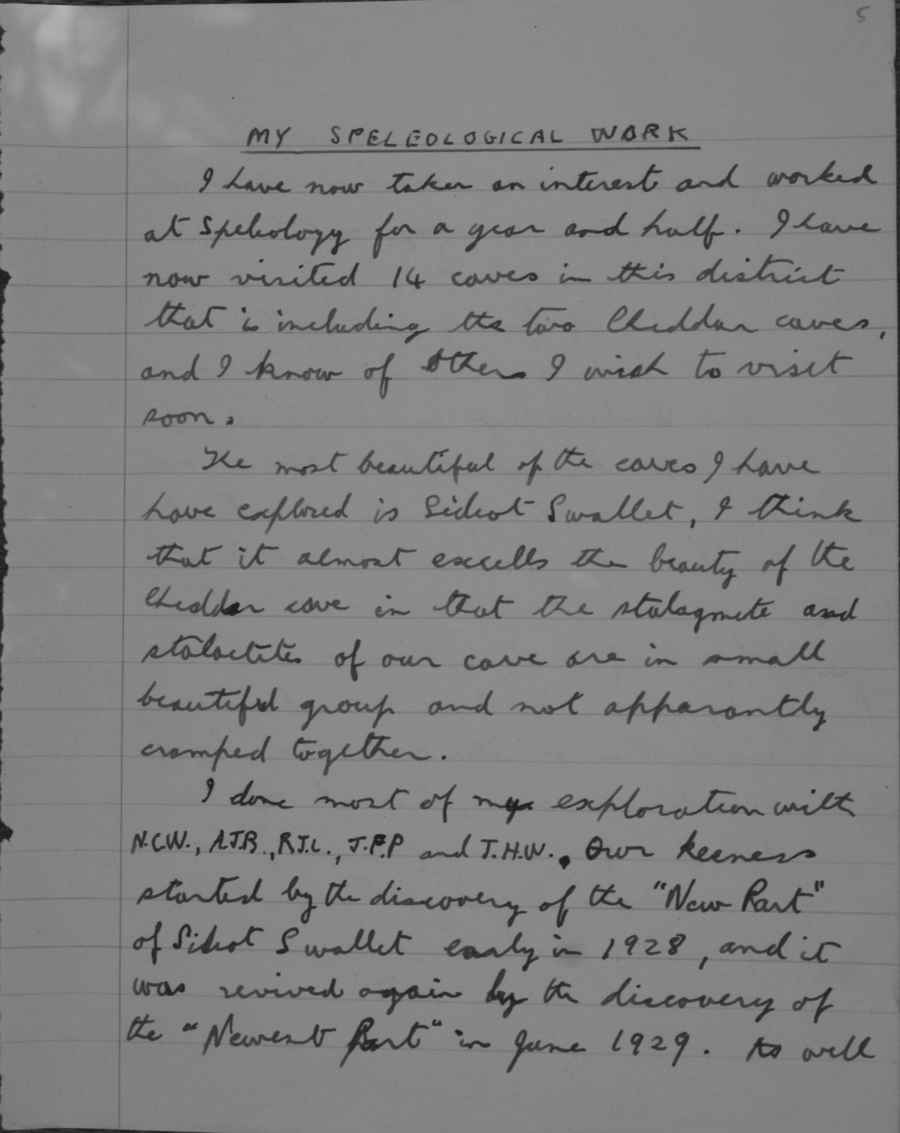 5
MY SPELEOLOGICAL WORK
I have now taken an interest and worked
at Speleology for a year and half. I have
now visited 14 caves in this district
that is including the two Cheddar caves,
and I know of others I wish to visit
soon.
The most beautiful of the caves I have
have explored is Sidcot Swallet, I think
that it almost excells the beauty of the
Cheddar cave in that the stalagmite and
stalactites of our cave are in small
beautiful group and not apparantly
cramped together.
I done most of my exploration with
N.C.W., A.J.B., R.J.L., J.P.P and T.H.W.. Our keeness
started by the discovery of the "New Part"
of Sidcot Swallet early in 1928, and it
was revived again by the discovery of
the "Newest Part" in June 1929. As well